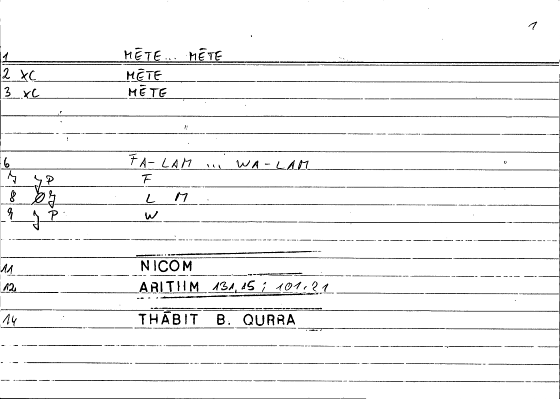 1
1 MĒTE ... MĒTE
2 XC MĒTE
3 XC MĒTE
6 FA-LAM ... WA-LAM
7 P F
8 L M
9 P W
11 NICOM
12 ARITHM 131,15; 101,21
14 THĀBIT B. QURRA